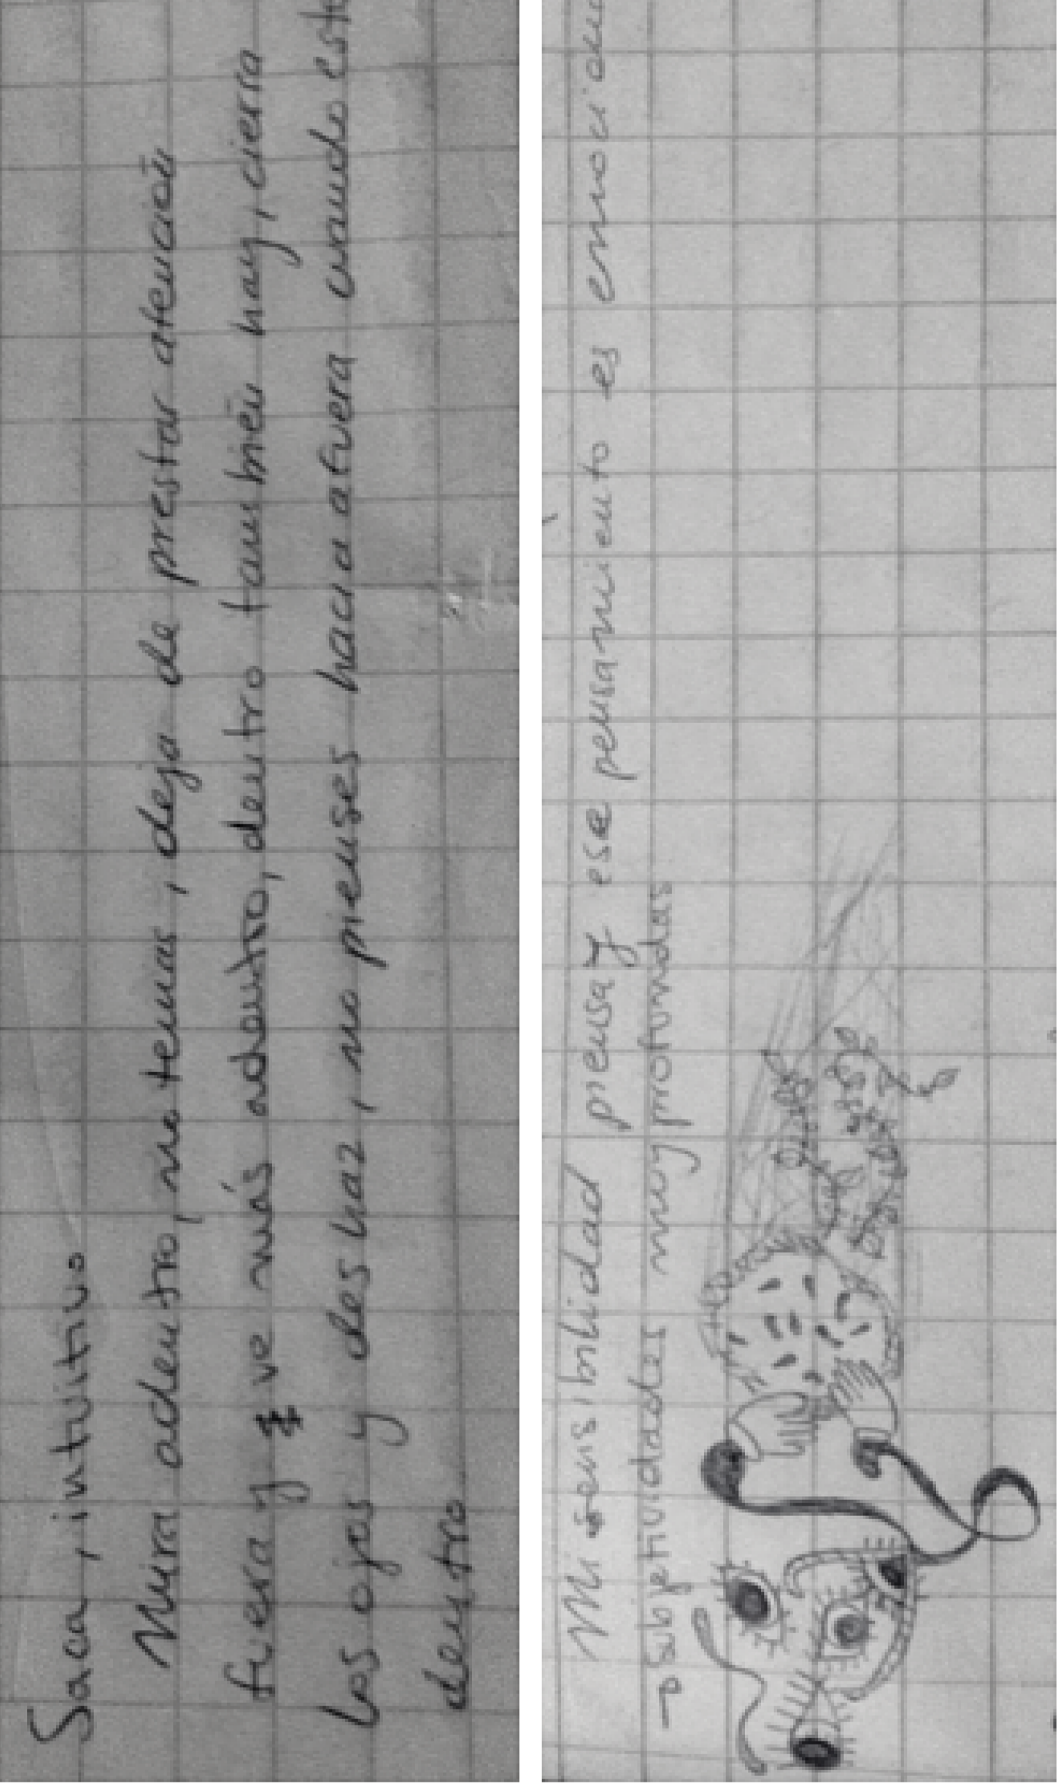 Saca, intuitivo
Mira adentro, no temas, deja de prestar atención
fuera y ve más adentro, dentro también hay, cierra
los ojos y deshaz, no pienses hacia afuera cuando esté
dentro
Mi sensibilidad piensa y ese pensamiento es
→ subjetividades muy profundas